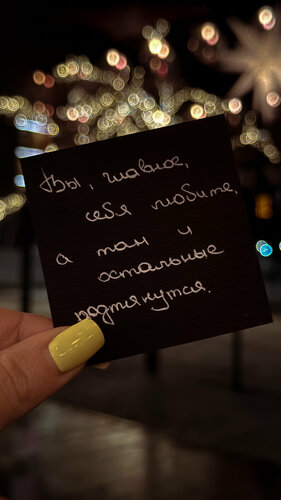 Вы, главное,
себя любите,
а там и
остальные
подтянутся.